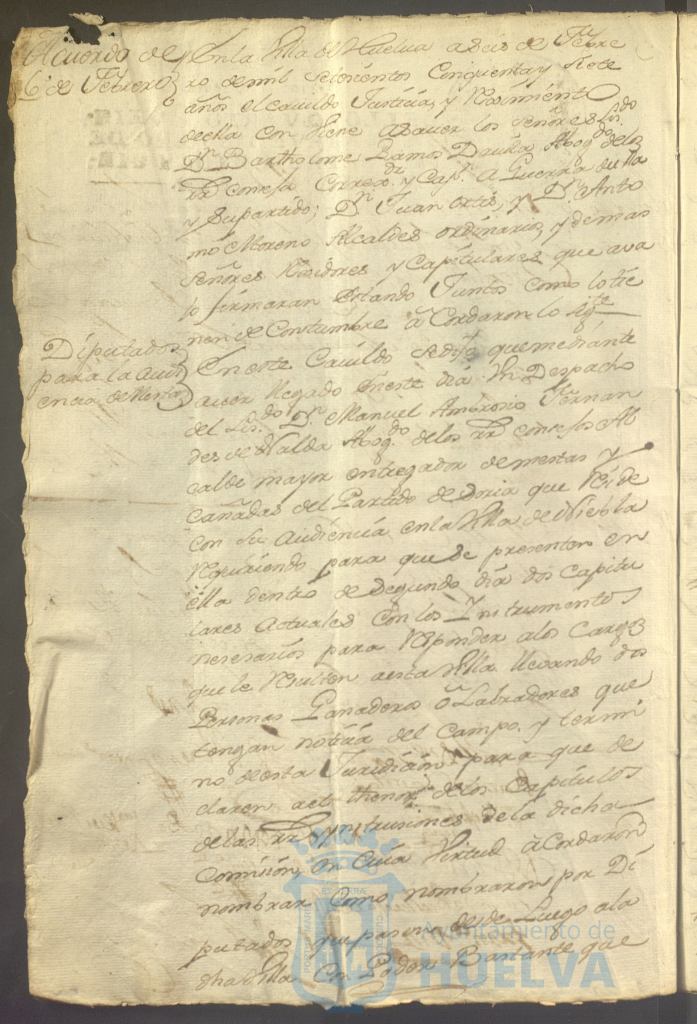 Acuerdo de
6 de Febrero
En la Villa de Huelva a Seis de Febre
ro de mil Setecientos Cinquenta y Siete
años el cavildo Justicia, y Reximiento
de ella con viene a saver los señores Lizdo
Dn Bartholome Ramos Davila Abogdo de los
Rs conses Correxdr y Capn a Guerra de ella
y su partido; Dn Juan Ortis, y Dn Anto
nio Moreno Alcaldes ordinarios, y demas
señores Rexidores y Capitulares que ava
jo firmaran estando Juntos como lo tie
nen de Constumbre acordaron lo sigte
Diputados
para la Audi
encia de Mesta
En este Cavildo se dijo que mediante
aver llegado oi este dia Un Despacho
del Lisdo Dn Manuel Ambrosio Fernan
des de Nalda Abogdo de los Rs consejos Al
calde mayor entregador de mestas y
cañadas del Partido de Soria que Reside
con su Audiencia en la Villa de Niebla
Requiriendo para que se presenten en
ella dentro de Segundo dia dos Capitu
lares actuales con los Instrumentos
nesesarios para Responder a los Cargos
que le Resulten a esta Villa llevando dos
Personas Ganaderos o Labradores que
tengan notisia del Campo y termi
no de esta Juridision para que de
claren al thenor de los Capitulos
de las Rs Ynstrusiones de la dicha
Comision, en Cuia Virtud acordaron
nombrar como nombraron por Di
putados que pasen desde Luego a la
dha Villa Con Poder Bastante que
Ayuntamiento de
HUELVA